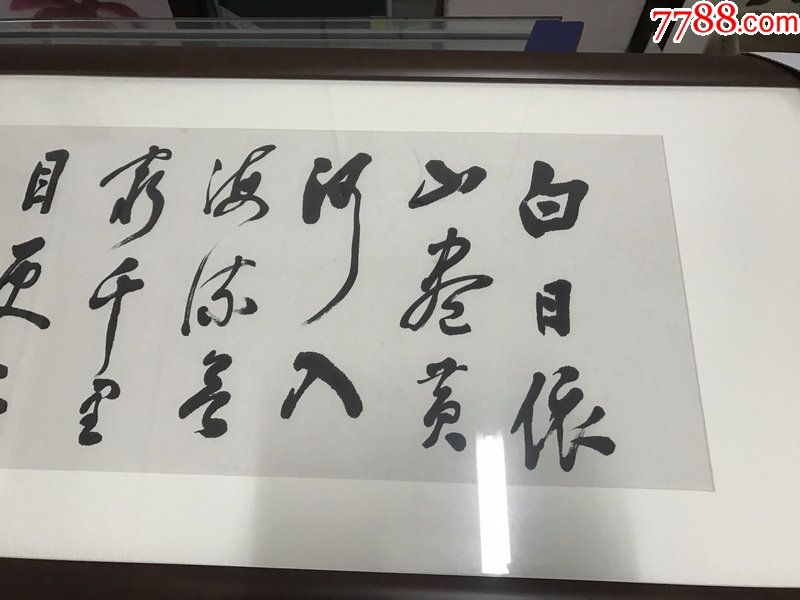 7788.com
白日依
山盡黄
河入
海流欲
窮千里
目更